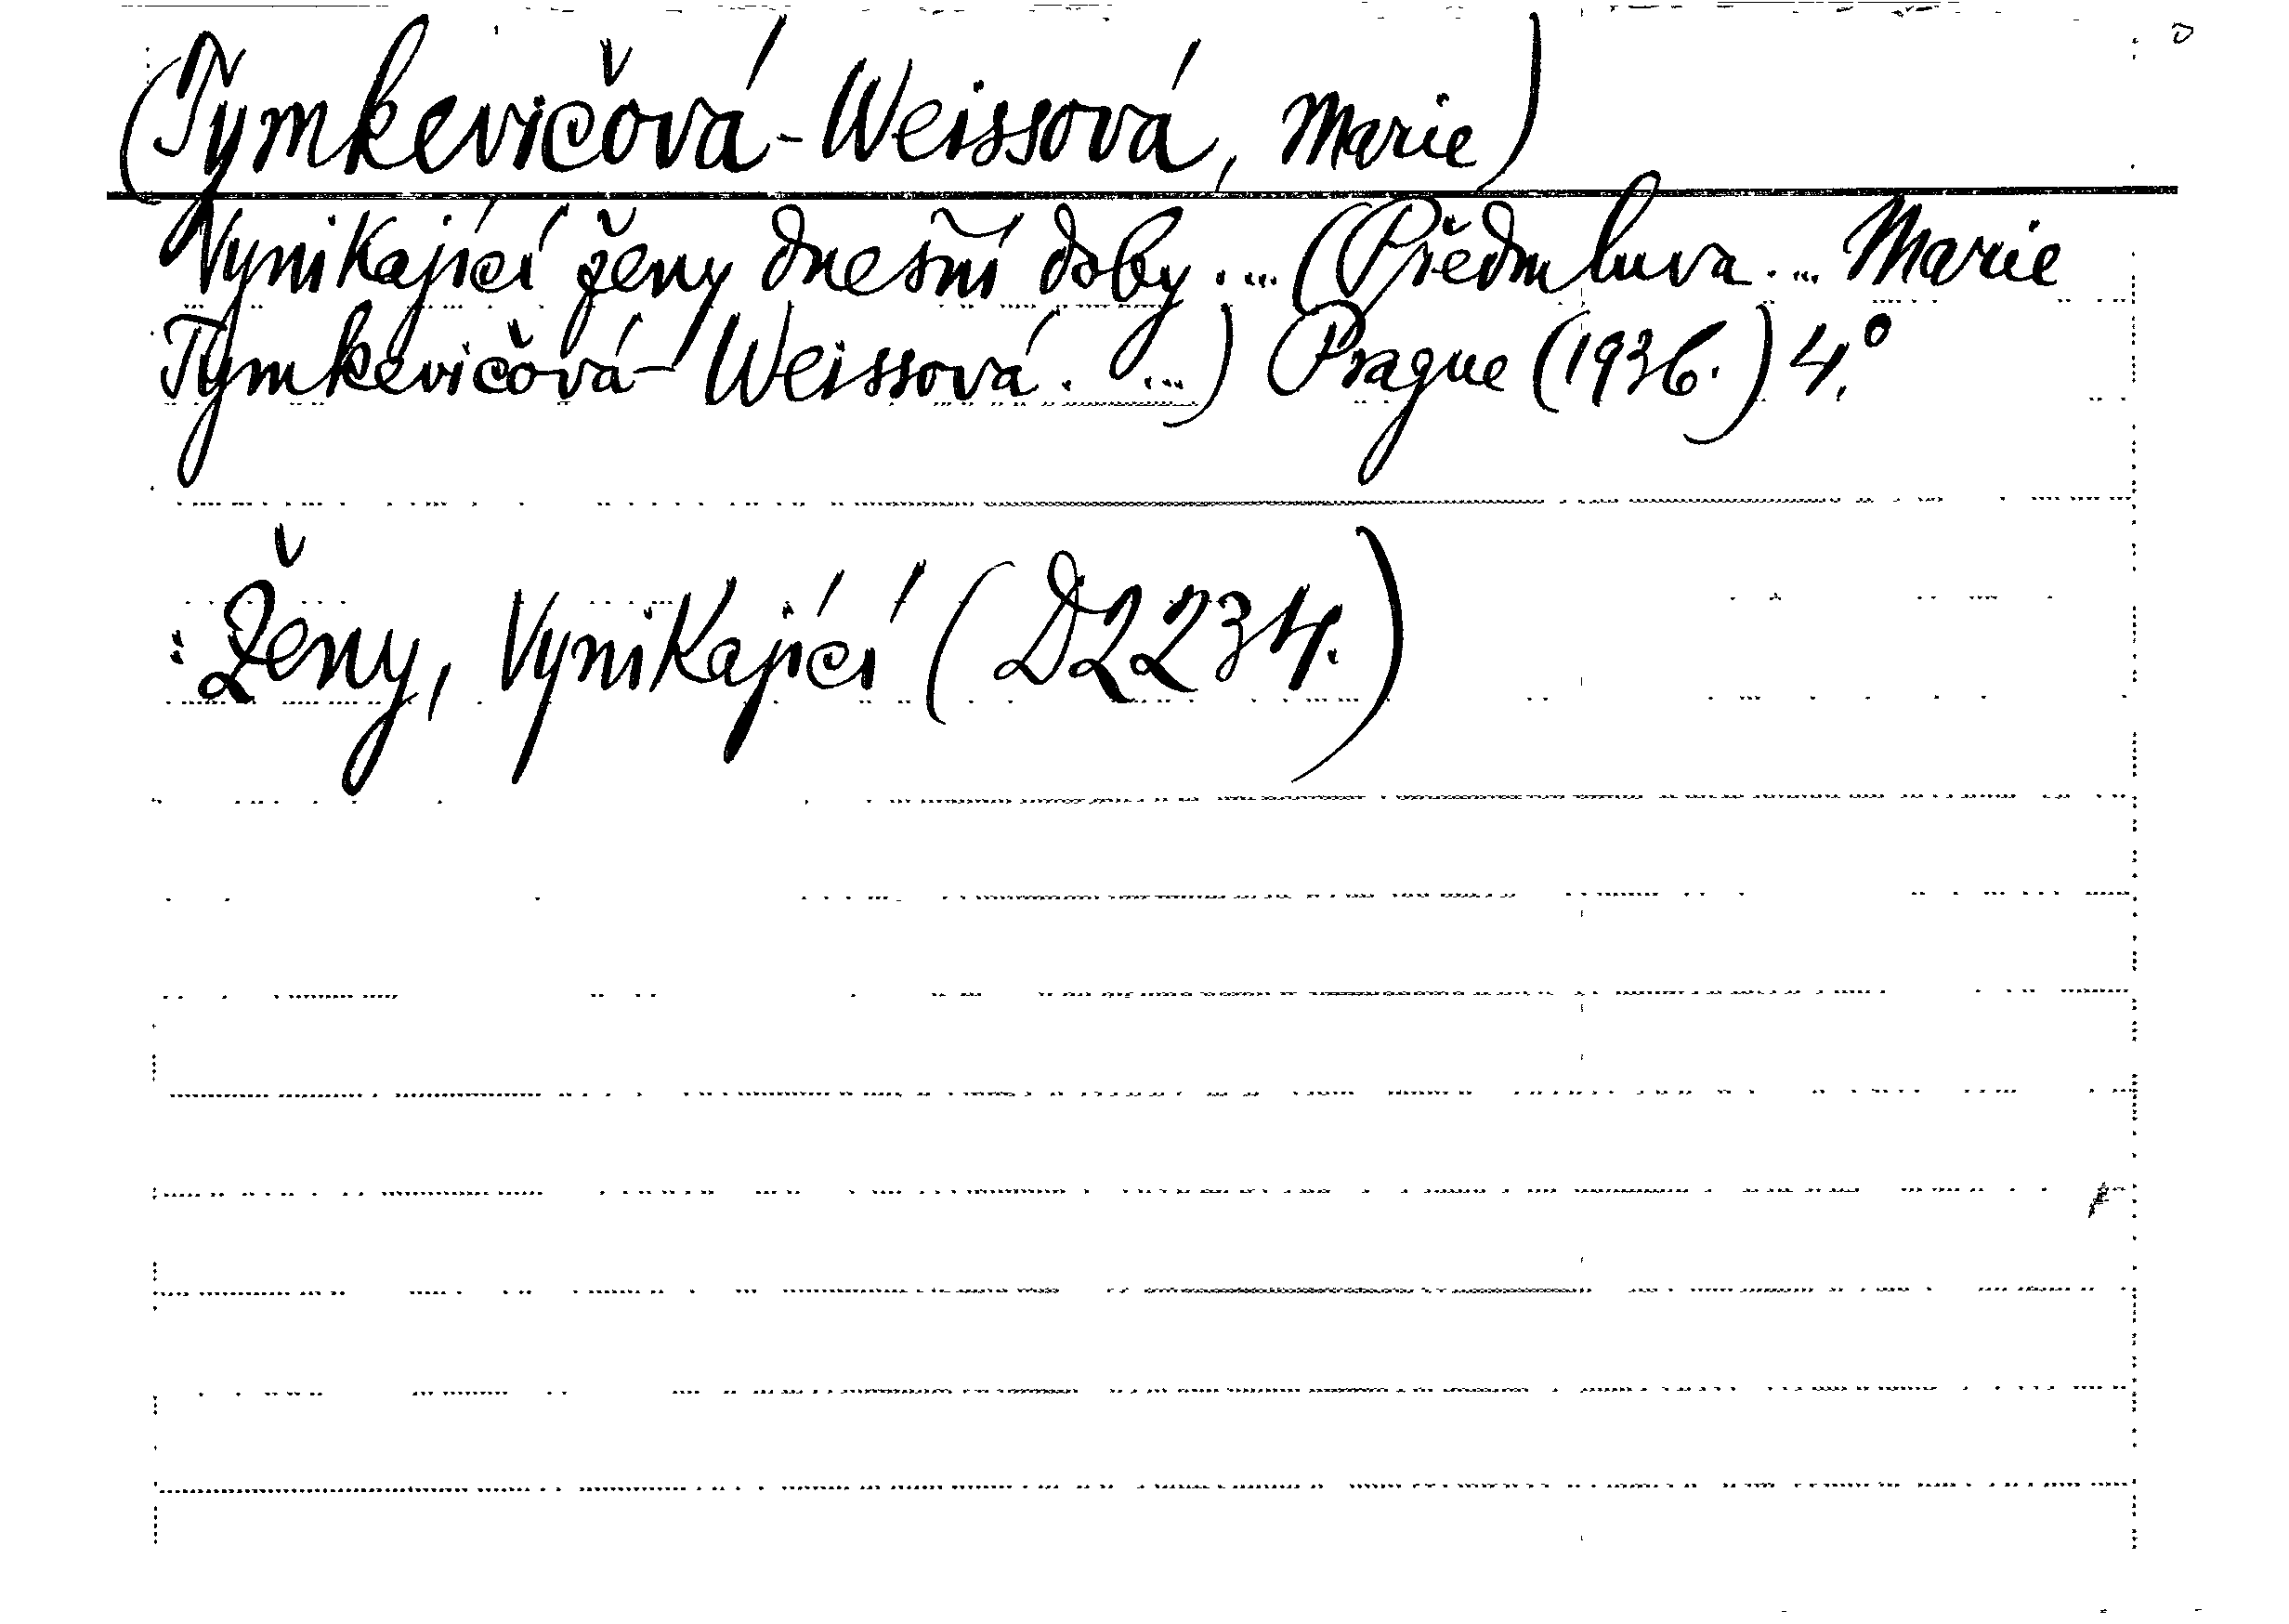 (Tymkevičová-Weissová, Marie)
Vynikající ženy dnešní doby. ... (Předmluva. ... Marie
Tymkevičová-Weissová. ...) Prague (1936.) 4.º
: Ženy, Vynikající (D2234.)